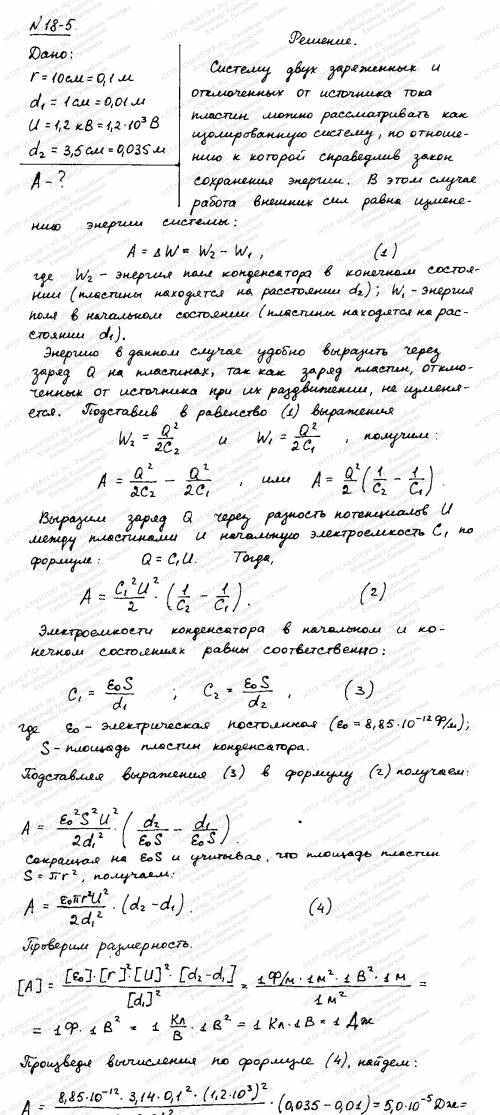 N 18-5
Дано:
r = 10см = 0,1 м
d₁ = 1 см = 0,01 м
U = 1,2 кВ = 1,2·10³ В
d₂ = 3,5 см = 0,035 м
A - ?
Решение.
Систему двух заряженных и
отключенных от источника тока
пластин можно рассматривать как
изолированную систему, по отноше-
нию к которой справедлив закон
сохранения энергии. В этом случае
работа внешних сил равна измене-
нию энергии системы:
A = ΔW = W₂ - W₁ , (1)
где W₂ - энергия поля конденсатора в конечном состоя-
нии (пластины находятся на расстоянии d₂); W₁ - энергия
поля в начальном состоянии (пластины находятся на рас-
стоянии d₁).
Энергию в данном случае удобно выразить через
заряд Q на пластинах, так как заряд пластин, отклю-
ченных от источника при их раздвижении, не изменя-
ется. Подставив в равенство (1) выражения
W₂ = Q²/2C₂ и W₁ = Q²/2C₁ , получим:
A = Q²/2C₂ - Q²/2C₁ , или A = Q²/2 (1/C₂ - 1/C₁).
Выразим заряд Q через разность потенциалов U
между пластинами и начальную электроемкость C₁ по
формуле: Q = C₁U. Тогда,
A = C₁²U²/2 · (1/C₂ - 1/C₁). (2)
Электроемкости конденсатора в начальном и ко-
нечном состояниях равны соответственно:
C₁ = ε₀S/d₁ ; C₂ = ε₀S/d₂ , (3)
где ε₀ - электрическая постоянная (ε₀ = 8,85·10⁻¹² Ф/м);
S - площадь пластин конденсатора.
Подставляя выражения (3) в формулу (2) получаем:
A = ε₀²S²U²/2d₁² · (d₂/ε₀S - d₁/ε₀S).
Сокращая на ε₀S и учитывая, что площадь пластин
S = πr², получаем:
A = ε₀πr²U²/2d₁² · (d₂ - d₁). (4)
Проверим размерность.
[A] = [ε₀]·[r]²·[U]²·[d₂-d₁]/[d₁]² = 1Ф/м · 1м² · 1В² · 1м/1м² =
= 1Ф · 1В² = 1 Кл/В · 1В² = 1 Кл·1В = 1 Дж
Произведя вычисления по формуле (4), найдем:
A = 8,85·10⁻¹² · 3,14 · 0,1² · (1,2·10³)² · (0,035 - 0,01) = 5,0·10⁻⁵ Дж =